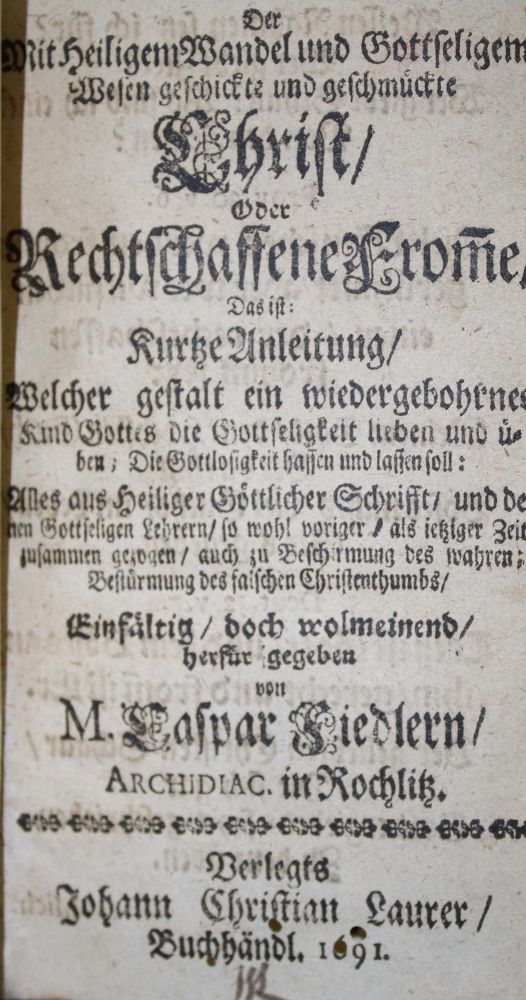 Der
Mit Heiligem Wandel und Gottseligem
Wesen geschickte und geschmückte
Christ/
Oder
Rechtschaffene From̃e/
Das ist:
Kurtze Anleitung/
Welcher gestalt ein wiedergebohrnes
Kind Gottes die Gottseligkeit lieben und ü-
ben; Die Gottlosigkeit hassen und lassen soll:
Alles aus Heiliger Göttlicher Schrifft/ und de-
nen Gottseligen Lehrern/ so wohl voriger/ als ietziger Zeit
zusammen gezogen/ auch zu Beschirmung des wahren;
Bestürmung des falschen Christenthumbs/
Einfältig/ doch wolmeinend/
herfür gegeben
von
M. Caspar Fiedlern/
ARCHIDIAC. in Rochlitz.
Verlegts
Johann Christian Laurer/
Buchhändl. 1691.